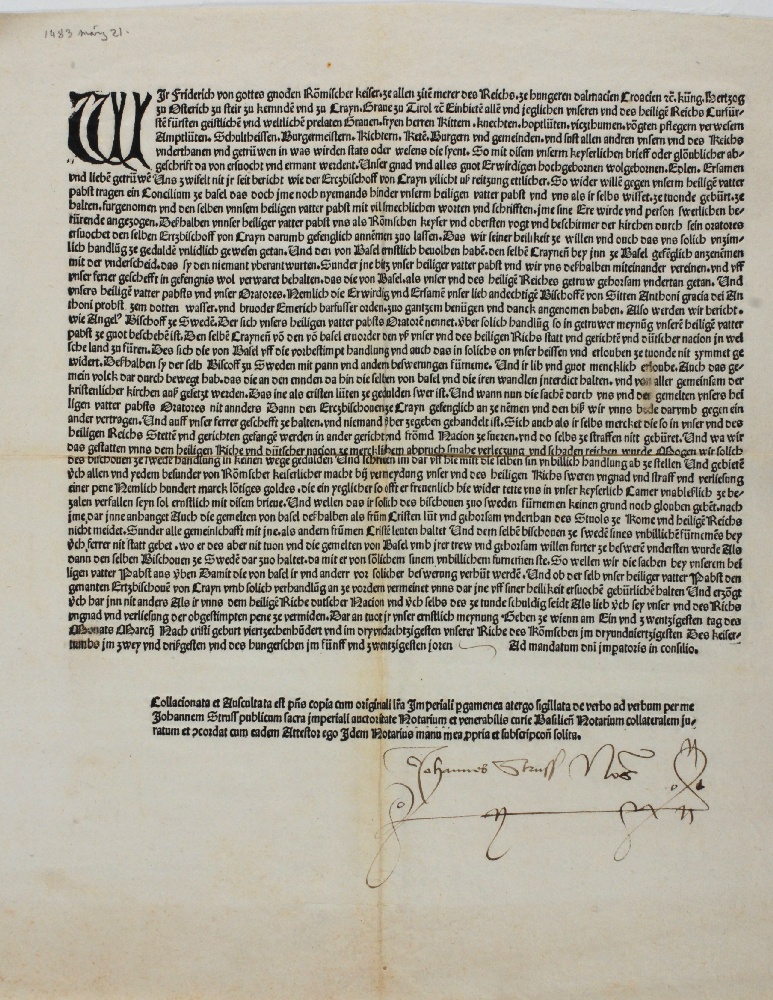 1483 märz 21.
WIr Friderich von gottes gnoden Römischer keiser.ze allen zitē merer des Reichs.ze hungeren dalmacien Croacien ꝛc̄. küng. Hertzog
zu Osterich zu steir zu kernndē vnd zu Crayn. Graue zu Tirol ꝛc̄ Einbietē allē vnd jeglichen vnseren vnd des heiligē Reichs Curfür-
stē fürsten geistlichē vnd weltlichē prelaten Grauen.fryen herren Rittern.knechten.hoptlüten.viczthumen.vögten pflegern verwesern
Amptlüten. Schultheissen. Burgermeistern. Richtern. Retē. Burgern vnd gemeinden.vnd sust allen andren vnsern vnd des Reichs
vnderthanen vnd getrüwen in was wirden stats oder wesens die syent. So mit disem vnserm keyserlichen brieff oder glöublicher ab-
geschrift da von ersuocht vnd ermant werdent. Unser gnad vnd alles guot Erwirdigen hochgebornen wolgebornen. Edlen. Ersamen
vnd liebē getrüwē Uns zwifelt nit jr seit bericht wie der Erczbischoff von Crayn villicht uß reitzung ettlicher. So wider willē gegen vnserm heiligē vatter
pabst tragen ein Concilium ze basel das doch jme noch nyemands hinder vnserm heiligen vatter pabst vnd vns als ir selbs wisset.ze tuonde gebürt.ze
halten.furgenomen vnd den selben vnnsern heiligen vatter pabst mit vil smechlichen worten vnd schrifften.jme sine Ere wirde vnd person swerlichen be-
rürende angezogen. Deßhalben vnnser heiliger vatter pabst vns als Römschen keyser vnd obersten vogt vnd beschirmer der kirchen durch sein oratores
ersuochet den selben Ertzbischoff von Crayn darumb gefenglich annēmen zuo lassen. Das wir seiner heilikeit ze willen vnd ouch das vns solich vnzim-
lich handlūg ze geduldē vnlidlich gewesen getan. Und den von Basel ernstlich beuolhen habē.den selbē Craynē bey jnn ze Basel gefēglich anzenēmen
mit der vnderscheid.das sy den niemant vberantwurten. Sunder jne biß vnser heiliger vatter pabst vnd wir vns deßhalben miteinander vereinen.vnd vff
vnser ferrer gescheffit in gefengnis wol verwaret behalten.das die von Basel.als vnser vnd des heiligē Reichs getruw gehorsam vndertan getan. Und
vnsers heiligē vatter pabsts vnd vnser Oratores. Nemlich die Erwirdig vnd Ersamē vnser lieb andechtigē Bischoffe von Sitten Anthoni gracia dei An
thoni probst zem dotten wasser.vnd bruoder Emerich barfusser orden.zuo gantzem benügen vnd danck angenomen haben. Also werden wir bericht.
wie Angel⁹ Bischoff ze Swedē. Der sich vnsers heiligen vatter pabsts Oratorē nennet. vber solich handlūg so in getruwer meynūg vnserē heiligē vatter
pabst ze guot beschehē ist. Den selbē Craynē vō den vō basel eruorder den vß vnser vnd des heiligen Richs statt vnd gerichtē vnd dütscher nacion jn wel
sche land zu füren. Des sich die von Basel vff die vorbestimpt handlung vnd auch das in soliche on vnser heissen vnd erlouben ze tuonde nit zymmet ge
widert. Deßhalben sy der selb Biscoff zu Sweden mit pann vnd andern beswerungen fürneme. Und ir lib vnd guot mencklich erloube. Auch das ge-
mein volck dar durch bewegt hab.das die an den ennden da hin die selben von basel vnd die iren wandlen interdict halten. vnd von aller gemeinsam der
kristenlicher kirchen auß gesetzt werden. Das ine als eristen lüten ze gedulden swer ist. Und wann nun die sachē durch vns vnd der gemelten vnsers hei
ligen vatter pabsts Oratores nit annders Dann den Erczbischouen ze Crayn gefenglich an ze nēmen vnd den biß wir vnns bede darumb gegen ein
ander vertragen. Und auff vnser ferrer geschefft ze halten.vnd niemand vber zegeben gehandelt ist. Sich auch als ir selbs mercket die so in vnser vnd des
heiligen Reichs Stettē vnd gerichten gefangē werden in ander gericht vnd frömd Nacion ze fueren.vnd do selbs ze straffen nitt gebüret. Und wa wir
das gestatten vnns dem heiligen Riche vnd dütscher nacion ze mercklichem abpruch smahe verlerzung vnd schaden reichen wurde Mogen wir solich
des bischouen ze swede handlung in keinen wege gedulden Und schriben im dar vff hie mitt die selben sin vnbillich handlung ab ze stellen Und gebietē
vch allen vnd yedem besunder von Römischer keiserlicher macht bij vermeydung vnser vnd des heiligen Richs sweren vngnad vnd straff vnd verliesung
einer pene Nemlich hundert marck lötiges goldes.die ein yeglicher so offt er freuenlich hie wider tette vns in vnser keyserlich Camer vnableßlich ze be-
zalen verfallen seyn sol ernstlich mit disem brieue. Und wellen das ir solich des bischouen zuo sweden fürnemen keinen grund noch glouben gebēt.nach
jme dar inne anhanget Auch die gemelten von basel deßhalben als frum Cristen lüt vnd gehorsam vnderthan des Stuols ze Rome vnd heiligē Reichs
nicht meidet. Sunder alle gemeinschafft mit jne.als andern frumen Cristē leuten haltet Und dem selbē bischouen ze swedē sines vnbillichē fürnemēs bey
vch ferrer nit statt gebet.wo er des aber nit tuon vnd die gemelten von Basel vmb jrer trew vnd gehorsam willen furter ze beswerē vnderstien wurde Als
dann den selben Bischouen ze Swedē dar zuo haltet.da mit er von sölichem sinem vnbillichem furnemen ste. So wellen wir die sachen bey vnserem hei
ligen vatter Pabst ans yben Damit die von basel ir vnd anderr vor solicher beswerung verhüt werdē. Und ob der selb vnser heiliger vatter Pabst den
genanten Ertzbischouē von Crayn vmb solich verhandlūg an ze vordern vermeinet vnns dar jne vff siner heilikeit ersuochē gebürlichē halten Und erzögt
vch har jnn nit anders Als ir vnns dem heiligē Riche dutscher Nacion vnd vch selbs des ze tunde schuldig seidt Als lieb vch sey vnser vnd des Richs
vngnad vnd verliesung der obgestimpten pene ze vermiden. Dar an tuot jr vnser ernstlich meynung Geben ze wienn am Ein vnd zwentzigesten tag des
Monats Marcij Nach cristi geburt viertzechenhündert vnd im dryvndachtzigesten vnserer Riche des Römschen jm dryundviertzigesten Des keiser-
tumbs jm zwey vnd drißgesten vnd des hungerschen jm fünff vnd zwentzigesten joren Ad mandatum dni impatoris in consilio.
Collacionata et Auscultata est pn̄s copia cum originali lr̄a Imperiali pgamenea atergo sigillata de verbo ad verbum per me
Johannem Struss publicum sacra imperiali auctoritate Notarium et venerabilis curie Basilien̄ Notarium collateralem ju-
ratum et ꝯcordat cum eadem Attestor ego Idem Notarius manu mea ꝓpria et subscripcōn̄ solita.
Johannes Struss Not̄